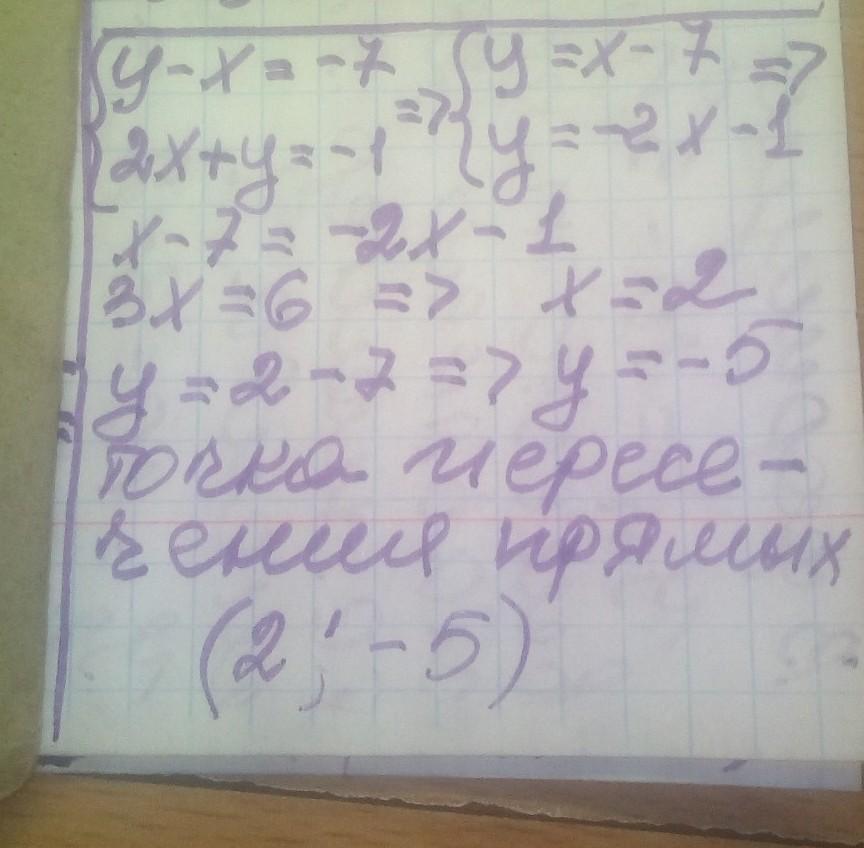 {y-x=-7 => {y=x-7 =>
{2x+y=-1 {y=-2x-1
x-7=-2x-1
3x=6 => x=2
y=2-7=>y=-5
точка пересе-
чения прямых
(2;-5)